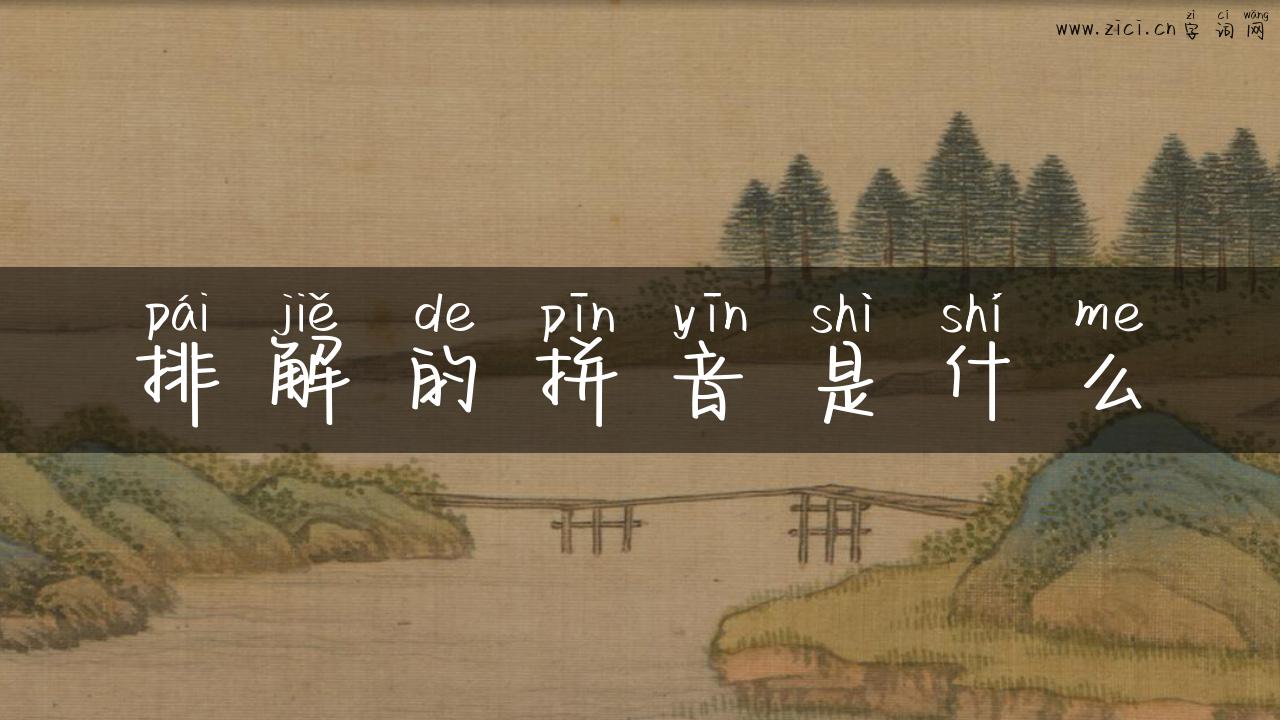 zì cí wǎng
www.zici.cn 字词网
pái jiě de pīn yīn shì shí me
排解的拼音是什么